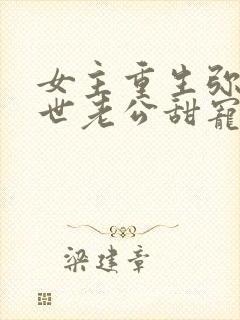 女主重生弥
世老公甜宠
梁建章